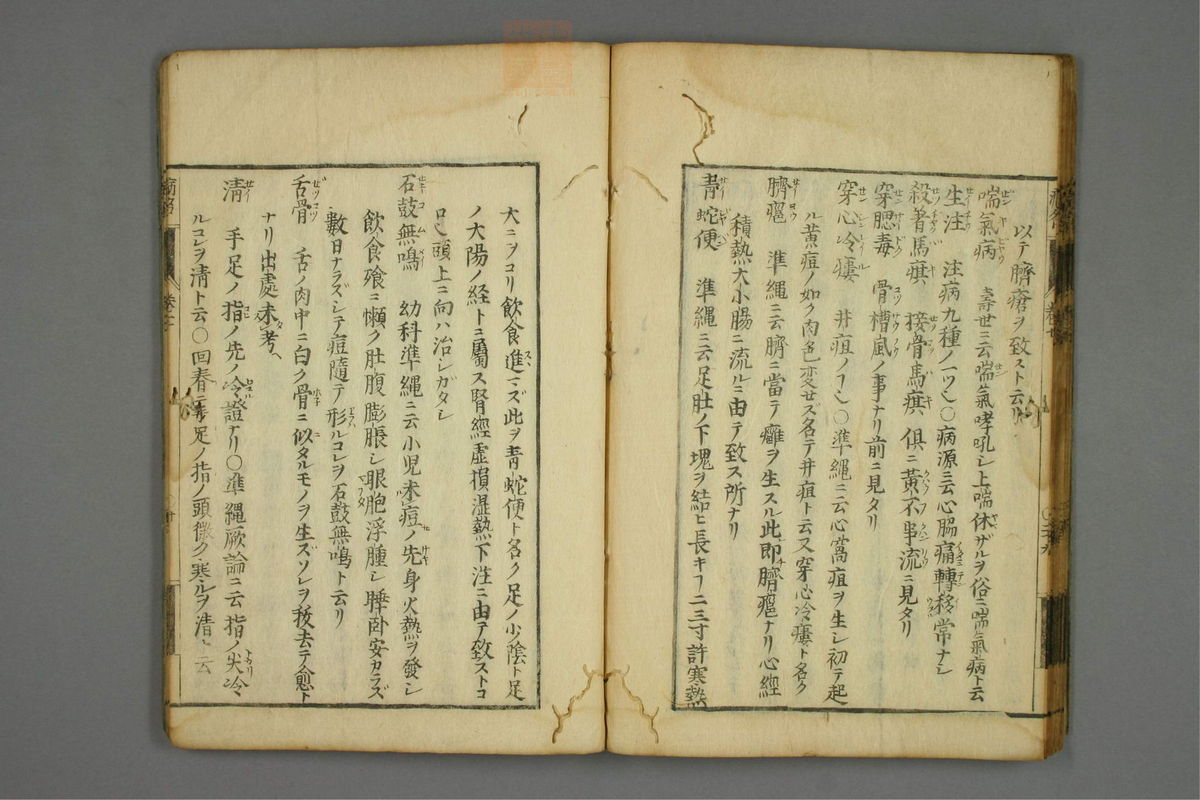 以テ臍瘡ヲ致スト云リ
喘氣病 壽世ニ云喘氣哮吼シ上喘休ザルヲ俗ニ喘氣病ト云
生注 注病九種ノ一ツ乄○病源ニ云心腸痛轉移常ナシ
殺著馬㾵 接骨馬㾵 俱ニ黃不串流ニ見タリ
穿腮毒 骨槽風ノ事ナリ前ニ見タリ
穿心冷瘻 井疽ノ乄○準繩ニ云心窩疽ヲ生シ初テ起
ル黃痘ノ如ク肉色変セズ名テ井疽ト云又穿心冷瘻ト名ク
臍癰 準繩ニ云臍ニ當テ癰ヲ生スル此即臍癰ナリ心經
積熱大小腸ニ流ルニ由テ致ス所ナリ
青蛇便 準繩ニ云足肚ノ下塊ヲ結ヒ長キ二三寸許寒熱
大ニヲコリ飲食進マズ此ヲ青蛇便ト名ク足ノ少陰ト足
ノ大陽ノ経トニ屬ス腎經虛損湿熱下注ニ由テ致ストコ
ロ乄頭上ニ向ハ治シガタシ
石鼓無鳴 幼科準繩ニ云小児未痘ノ先身火熱ヲ發シ
飲食飱ニ懶ク肚腹膨脹シ眼胞浮腫シ睡卧安カラズ
數日ナラズシテ痘隨テ形ルコレヲ石鼓無鳴ト云リ
舌骨 舌ノ肉中ニ白ク骨ニ似タルモノヲ生ズソレヲ抜去テ愈ト
ナリ出處未考ヘ
清 手足ノ指ノ先ノ冷證ナリ○準縄厥論ニ云指ノ尖冷
ルコレヲ清ト云○回春ニ手足ノ指ノ頭微ク寒ルヲ清ト云